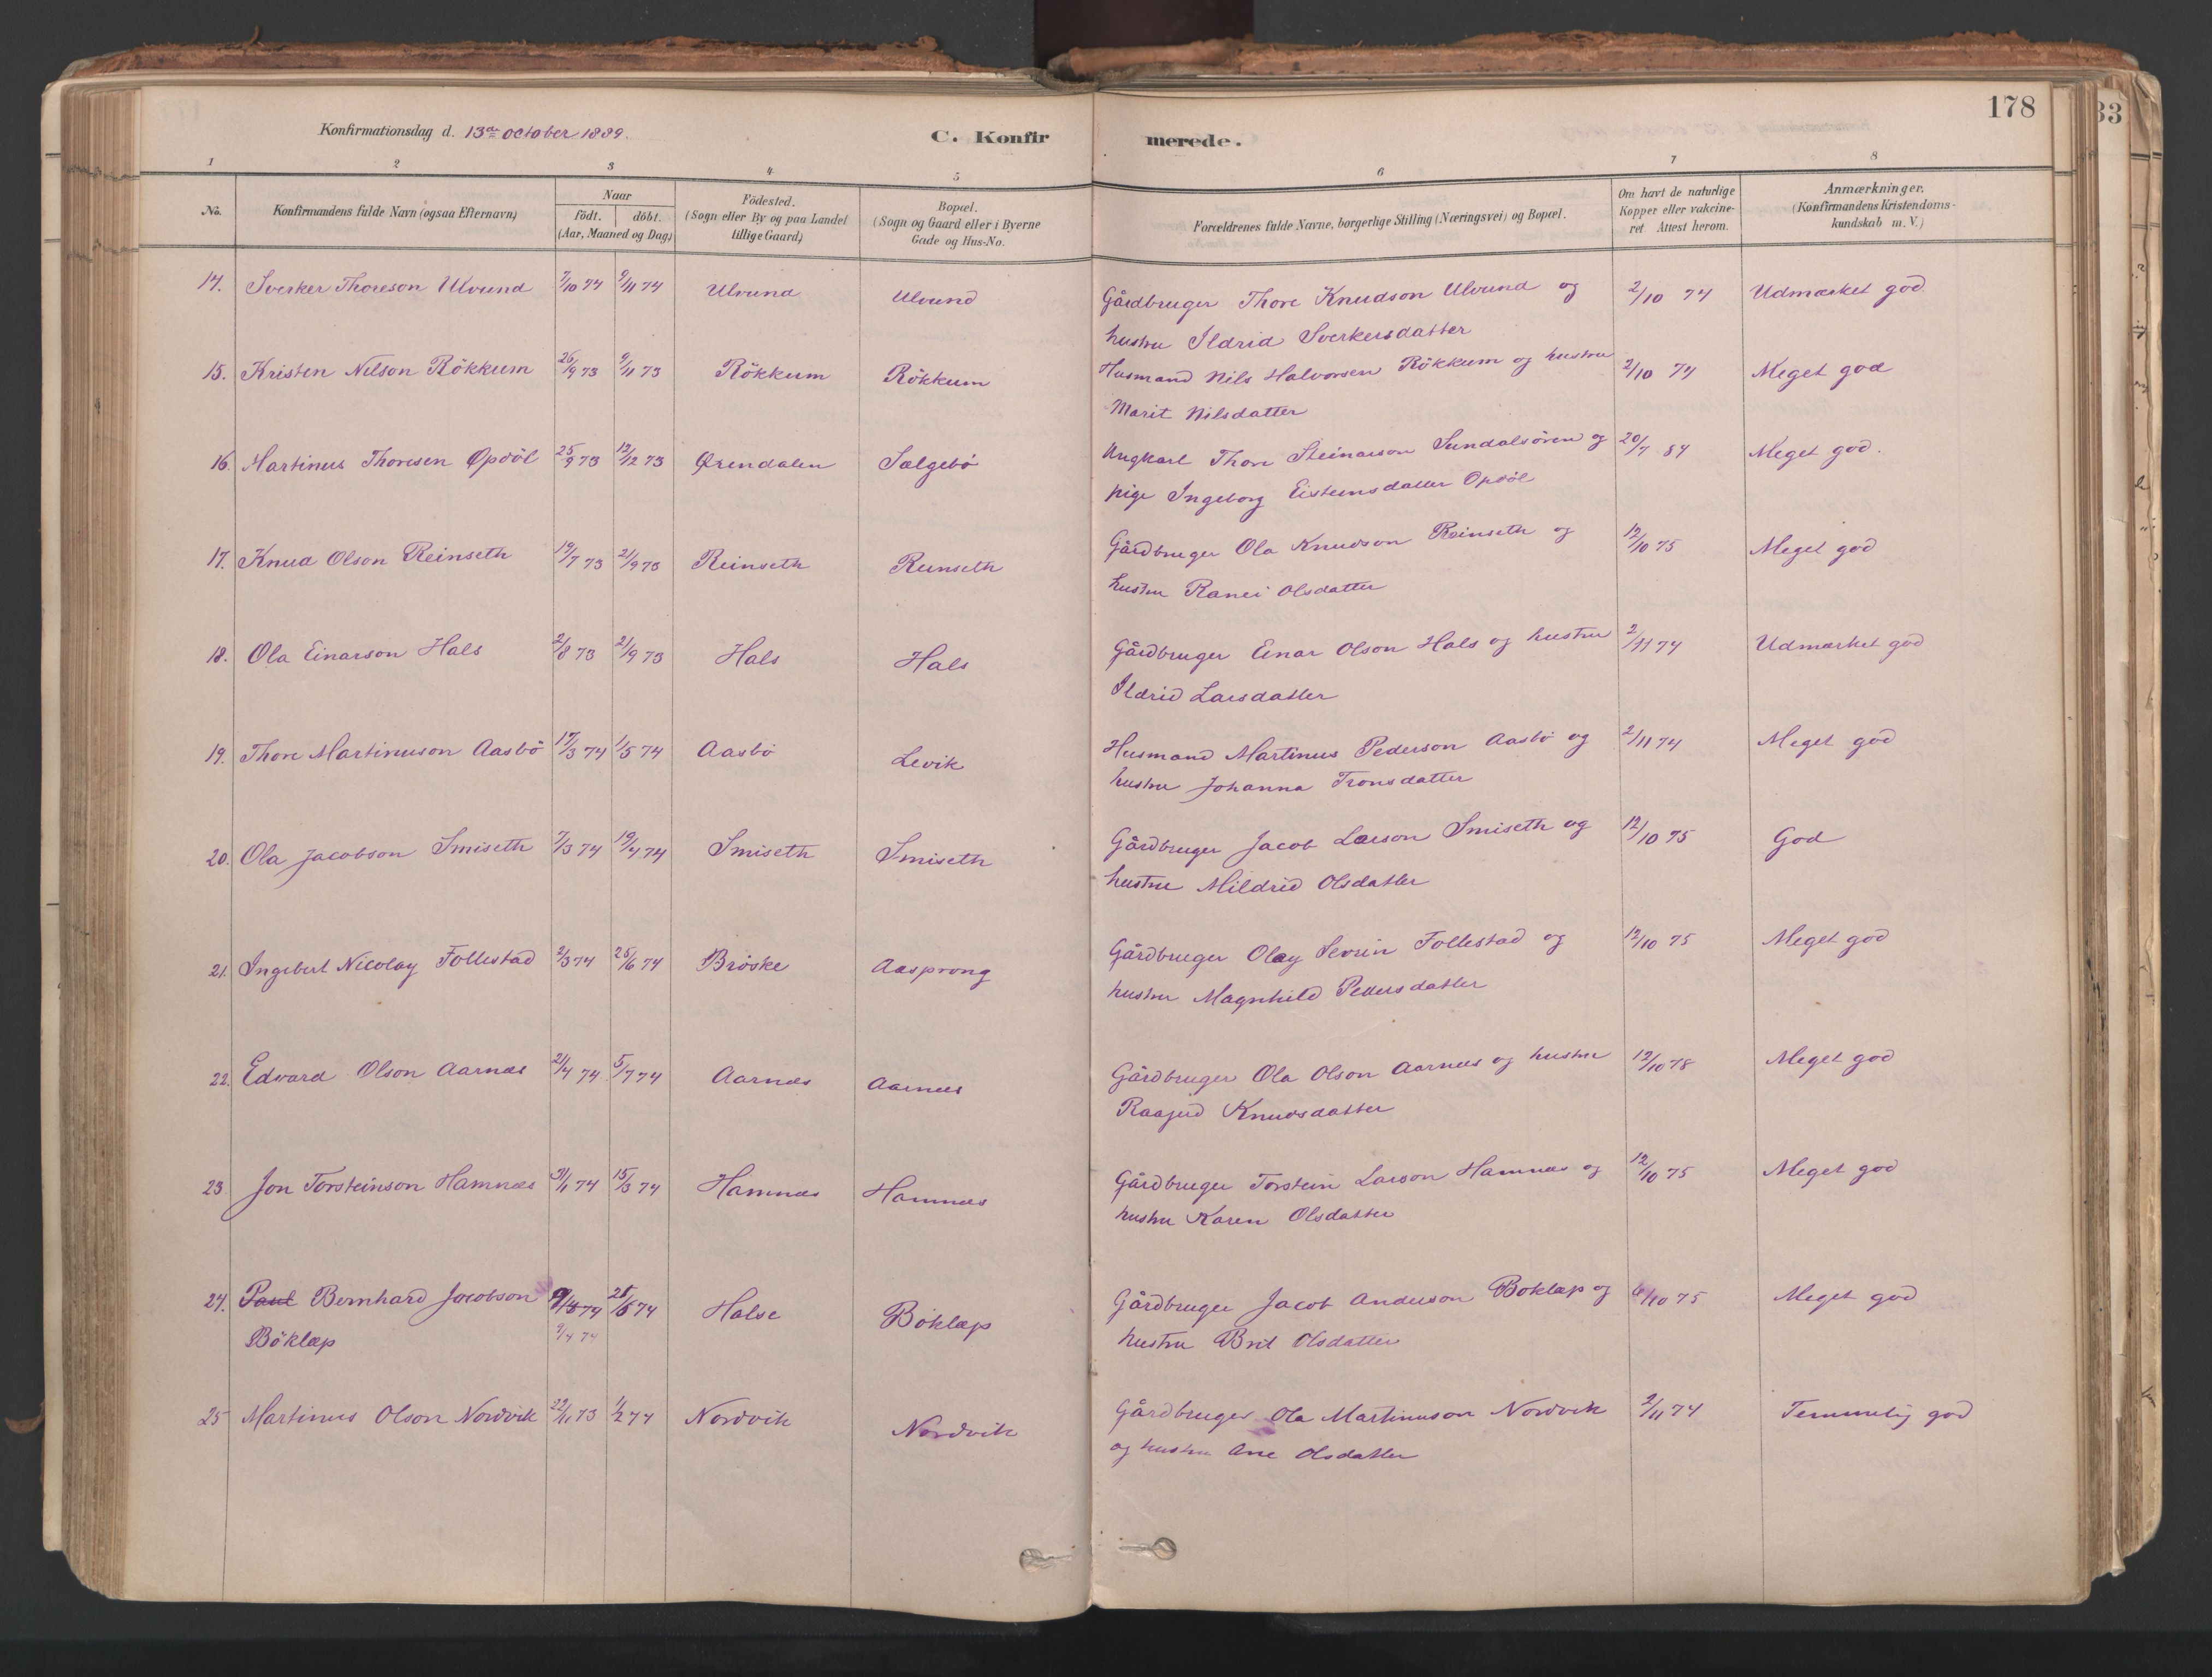 178
33
Konfirmationsdag d. 13de October 1889.
C. Konfir merede.
1 2 3 4 5 6 7 8
No.
Konfirmandens fulde Navn (ogsaa Efternavn)
Naar
födt. döbt.
(Aar, Maaned og Dag)
Födested.
(Sogn eller By og paa Landet
tillige Gaard)
Bopæl.
(Sogn og Gaard eller i Byerne
Gade og Hus-No.
Forældrenes fulde Navne, borgerlige Stilling (Næringsvei) og Bopæl.
Om havt de naturlige
Kopper eller vakcine-
ret Attest herom.
Anmærkninger.
(Konfirmandens Kristendoms-
kundskab m. V.)
14. Sverker Thoreson Ulvund 7/10 74 9/11 74 Ulvund Ulvund Gårdbruger Thore Knudson Ulvund og 2/10 74 Udmærket god.
hustru Ildrid Sverkersdatter
15. Kristen Nilson Rökkum 26/9 73 9/11 73 Rökkum Rökkum Husmand Nils Halvorsen Rökkum og hustru 2/10 74 Meget god
Marit Nilsdatter
16. Martinus Thoresen Opdöl 25/9 73 12/12 73 Ørendalen Salgebö Ungkarl Thore Steinarson Sundalsören og 20/7 84 Meget god.
pige Ingeborg Eisteinsdatter Opdöl
17. Knud Olson Reinseth 19/7 73 21/9 73 Reinseth Reinseth Gårdbruger Ola Knudson Reinseth og 12/10 75 Meget god
hustru Ranei Olsdatter
18. Ola Einarson Hals 2/8 73 21/9 73 Hals Hals Gårdbruger Einar Olson Hals og hustru 2/11 74 Udmærket god
Ildrid Larsdatter
19. Thore Martinuson Aasbö 17/3 74 1/5 74 Aasbö Levik Husmand Martinus Pederson Aasbö og 2/11 74 Meget god
hustru Johanna Tronsdatter
20. Ola Jacobson Smiseth 7/3 74 19/4 74 Smiseth Smiseth Gårdbruger Jacob Larson Smiseth og 12/10 75 God
hustru Mildrid Olsdatter
21. Ingebert Nicolay Follestad 2/3 74 25/6 74 Bröske Aasprong Gårdbruger Olay Sevrin Follestad og 12/10 75 Meget god
hustru Magnhild Pettersdatter
22. Edvard Olson Aarnæs 21/4 74 5/7 74 Aarnæs Aarnæs Gårdbruger Ola Olson Aarnæs og hustru 12/10 78 Meget god
Raagud Knudsdatter
23. Jon Torsteinson Hamnæs 31/1 74 15/3 74 Hamnæs Hamnæs Gårdbruger Torstein Larson Hamnæs og 12/10 75 Meget god
hustru Karen Olsdatter
24. Paul Bernhard Jacobson 74 74 Halse Böklæp Gårdbruger Jacob Anderson Böklæp og 75 Meget god
Böklæp 9/4 74 hustru Brit Olsdatter
25 Martinus Olson Nordvik 22/11 73 1/2 74 Nordvik Nordvik Gårdbruger Ola Martinuson Nordvik 2/11 74 Temmelig god
og hustru Ane Olsdatter